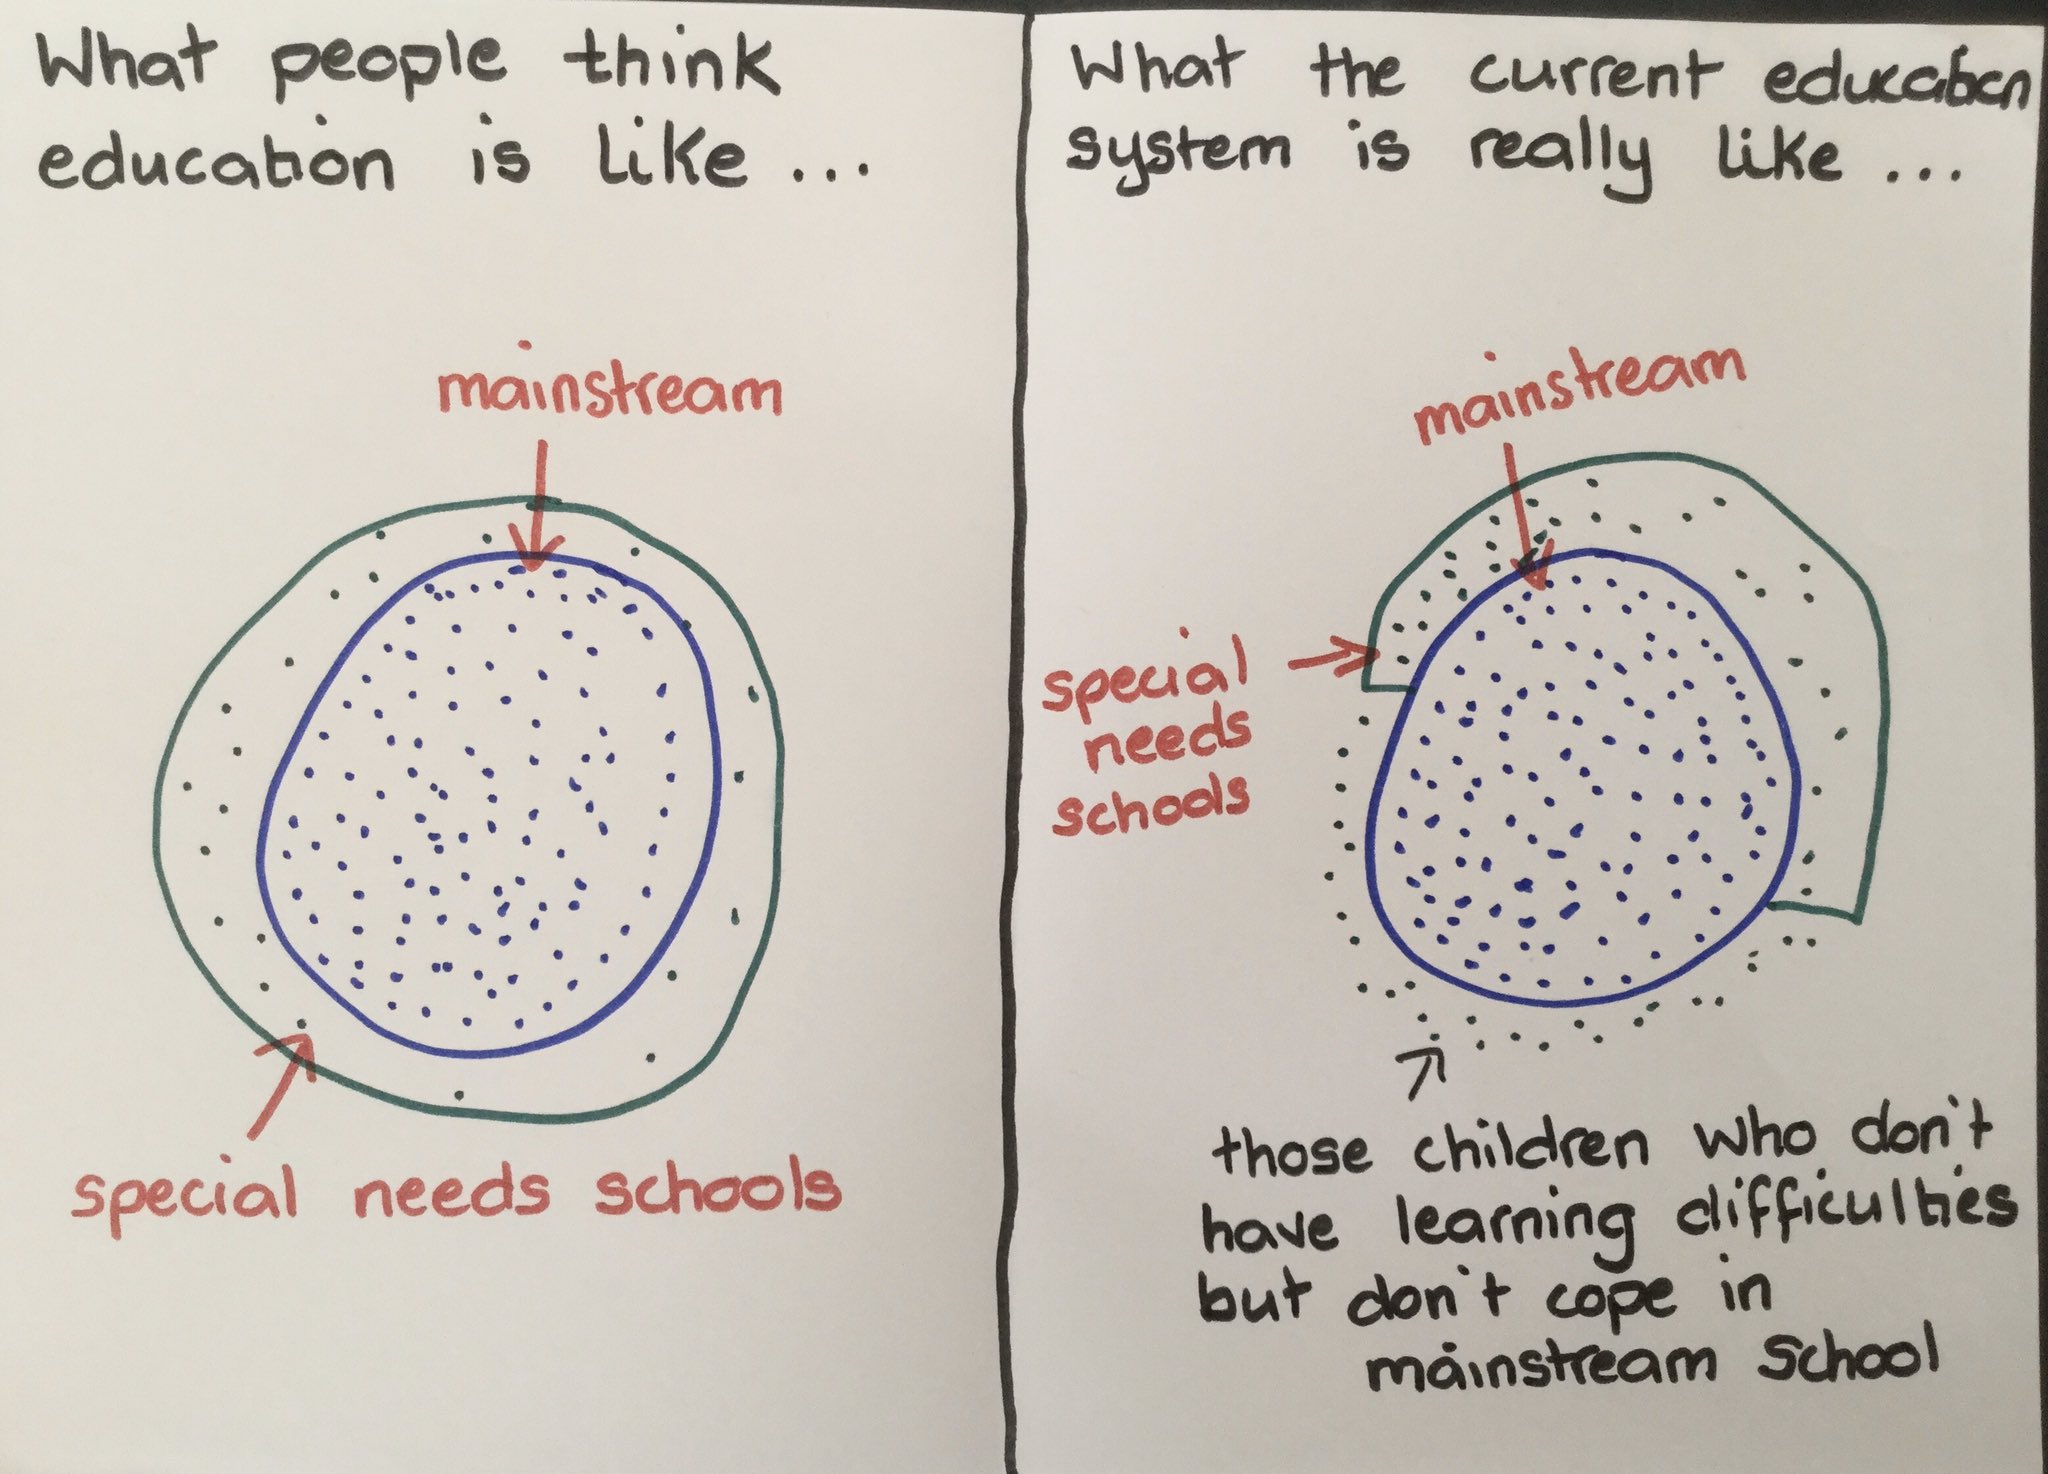 What people think
education is like ...
mainstream
special needs schools
What the current education
system is really like ...
mainstream
special
needs
schools
those children who don't
have learning difficulties
but don't cope in
mainstream school